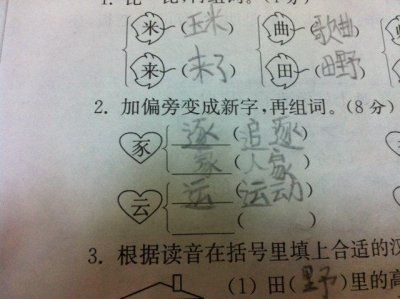 米(玉米) 曲(歌曲
来(来了) 田(田野)
2. 加偏旁变成新字,再组词。(8分)
豕 逐(追逐)
家(人家)
云 运(运动)
( )
3. 根据读音在括号里填上合适的汉
(1) 田(野)里的高